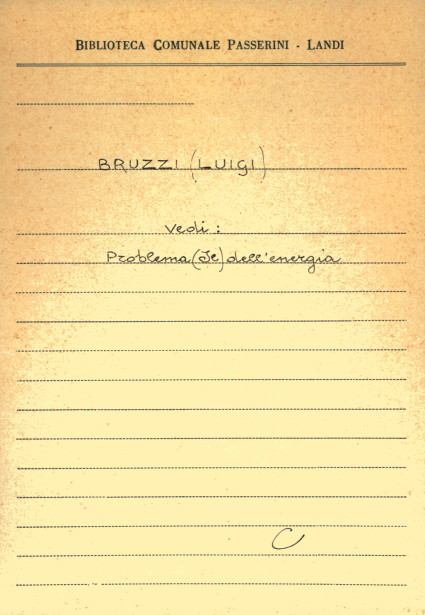 BIBLIOTECA COMUNALE PASSERINI - LANDI
BRUZZI (LUIGI)
Vedi :
Problema (Il) dell'energia
C